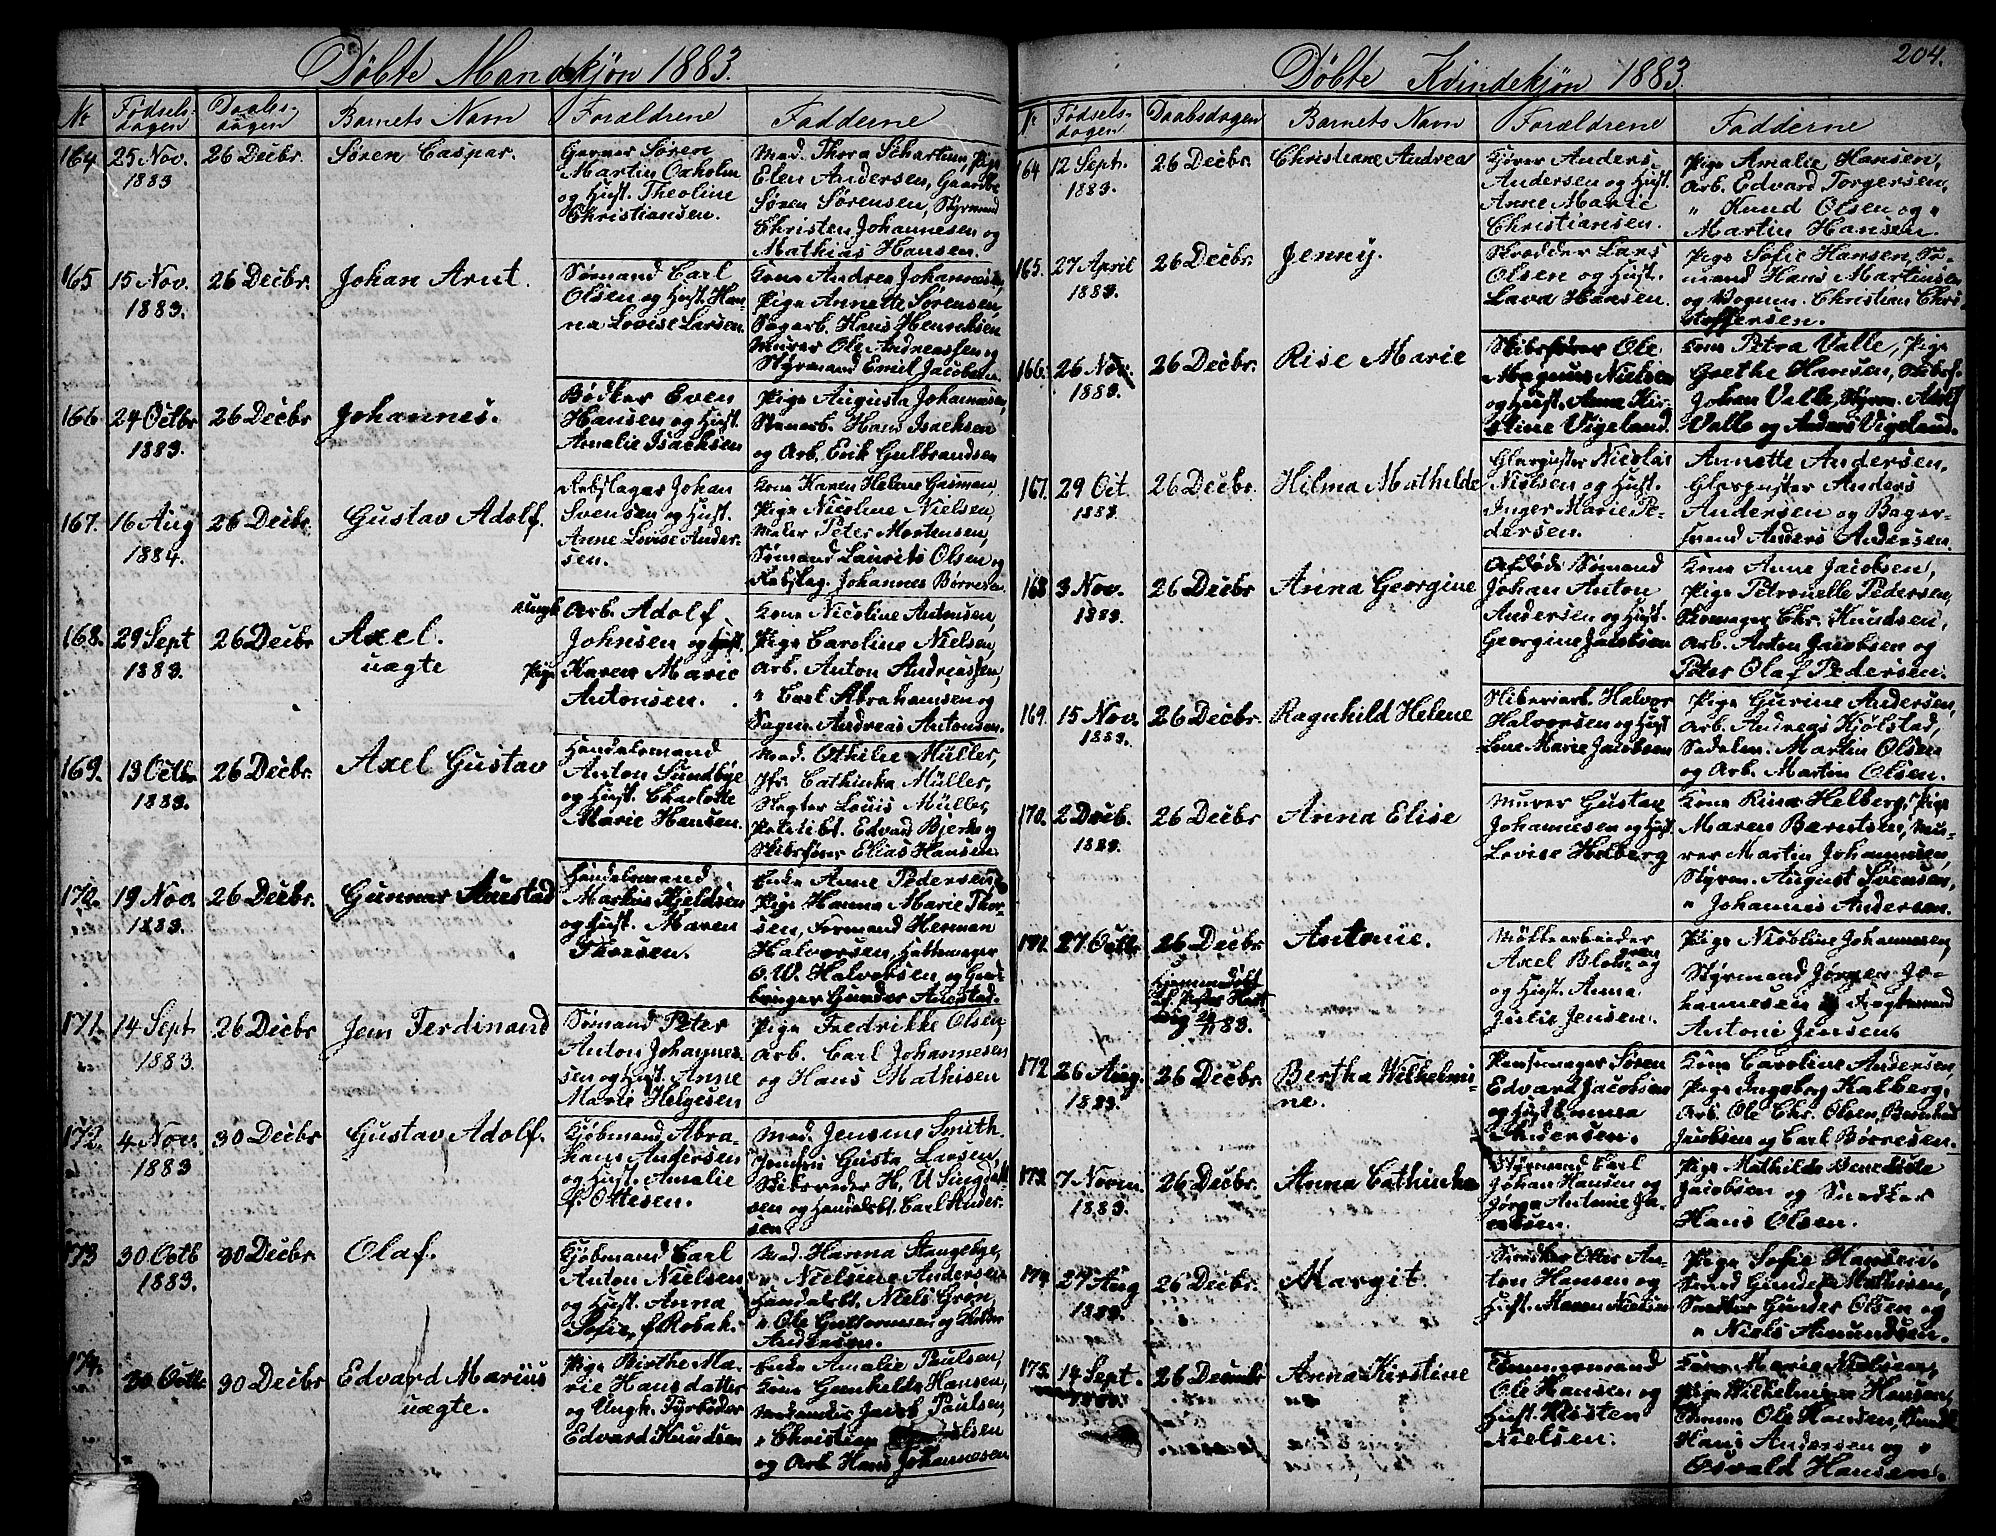 Døbte Mandkjøn 1883.
Nr Fødsels- dagen Daabs- dagen Barnets Navn Forældrene Fadderne
164 25 Nov. 1883 26 Decbr. Søren Caspar.
Garver Søren
Martin Oxholm
og Hust. Theoline
Christiansen.
Mad. Thora Schartum, Pige
Elen Andersen, Gaardbr
Søren Sørensen, Styrmand
Christen Johannesen og
Mathias Hansen.
165 15 Nov. 1883. 26 Decbr. Johan Arnt.
Sømand Carl
Olsen og Hust. Han-
na Lovise Larsen
Kone Andrea Johannesen
Pige Annette Sørensen,
Sagarb. Hans Henriksen
Murer Ole Andreassen og
Styrmand Emil Jacobsen
166 24 Octbr 1883. 26 Decbr Johannes.
Bødker Even
Hansen og Hust.
Amalie Isachsen
Pige Augusta Johannesen,
Stenarb. Hans Isachsen
og Arb. Erik Gulbrandsen
167. 16 Aug 1884. 26 Decbr. Gustav Adolf.
Rebslager Johan
Svensen og Hust.
Anne Lovise Ander-
sen.
Kone Karen Helene Gasman,
Pige Nicoline Nielsen,
Maler Peter Mortensen,
Sømand Laurits Olsen og
Rebslag. Johannes Børresen
168. 29 Sept 1883. 26 Decbr Axel.
uægte
Ungk Arb. Adolf
Johnsen og
Pige Karen Marie
Antonsen.
Kone Nicoline Antonsen,
Pige Caroline Nielsen,
Arb. Anton Andreassen,
" Carl Abrahamsen og
Andreas Antonsen.
169. 19 Octbr 1883. 26 Decbr. Axel Gustav
Handelsmand
Anton Sundbye
og Hust. Charlotte
Marie Hansen.
Mad. Othilie Müller,
Jfr. Cathinka Müller,
Slagter Louis Müller,
Edvard Bjerke og
Skibsfører Elias Hansen
170. 19 Nov. 1883. 26 Decbr. Gunnar Aanstad
Handelsmand
Markus Kjeldsen
og Hust. Maren
Thoresen.
Enke Anne Pedersen,
Pige Hanna Marie Thor-
sen, Formand Herman
Halvorsen, Hattemager
O. W. Halvorsen, og Gaard-
bruger Gunder Aanstad.
171. 14 Sept. 1883. 26 Decbr Jens Ferdinand
Sømand Peter
Anton Johannes-
sen og Hust. Anne
Marie Helgesen
Pige Fredrikke Olsen,
Arb. Carl Johannesen
og Hans Mathisen
172 4 Nov. 1883 30 Decbr Gustav Adolf.
Kjøbmand Abra-
ham Andersen
og Hust. Amalie
f. Ottesen.
Mad. Jensine Smith.
Jomfru Gusta Larsen,
Skibsreder H. U Singdal-
sen og Handelsbt. Carl Ander-
sen.
173 30 Octb 1883. 30 Decbr Olaf.
Kjøbmand Carl
Anton Nielsen
og Hust. Anna
Sofie f. Robak.
Mad. Hanna Stangebye,
" Nielsine Andersen
Handelsbt. Niels Grøn,
" Ole Guttormsen, og Peder
Andersen.
174. 30 Octbr 30 Decbr Edvard Marius
uægte.
Pige Birthe Ma-
rie Hansdatter
og Ungk. Fyrbøder
Edvard Knudsen
Enke Amalie Paulsen,
Kone Gunhilda Hansen,
Jacob Paulsen,
" Christian
og Arb. Hans Johannesen
204.
Døbte Kvindekjøn 1883.
Nr Fødsels- dagen Daabsdagen Barnets Navn Forældrene Fadderne
164 12 Sept. 1883. 26 Decbr. Christiane Andrea
Kjører Anders
Andersen og Hust.
Anne Marie
Christiansen.
Pige Amalie Hansen,
Arb. Edvard Torgersen,
" Knud Olsen og "
Martin Hansen.
165. 27 April 1883. 26 Decbr. Jenny.
Skrædder Lars
Olsen og Hust.
Lava Hansen.
Pige Sofie Hansen, Sø-
mand Hans Martinsen
og Vognm. Christian Chri-
stoffersen.
166. 26 Nov. 1883. 26 Decbr. Rise Marie
Skibsfører Ole
Magnus Nielsen
og Hust. Anna Kir-
stine Vigeland.
Kone Petra Valle, Pige
Grethe Hansen, Skibsf.
Johan Valle, Styrm. Adolf
Valle og Anders Vigeland.
167. 29 Oct. 1883. 26 Decbr. Hilma Mathilde
Glarmester Nicolai
Nielsen og Hust.
Inger Marie Pe-
dersen.
Annette Andersen,
Glarmester Anders
Andersen og Bager-
svend Anders Andersen.
168 3 Nov. 1883. 26 Decbr Anna Georgine
Afdøde Sømand
Johan Anton
Andersen og Hust.
Georgine Jacobsen
Kone Anne Jacobsen,
Pige Petronelle Pedersen,
Skomager Chr. Knudsen,
Arb. Anton Jacobsen og
Peter Olaf Pedersen.
169. 15 Nov. 1883. 26 Decbr. Ragnhild Helene
Skiberiarb. Halvor
Halvorsen og Hust
Lene Marie Jacobsen
Pige Gurine Andersen,
Arb. Andreas Kjølstad,
Sadelm. Martin Olsen
og Arb. Martin Olsen.
170. 2 Decb. 1883. 26 Decbr Anna Elise
Murer Gustav
Johannesen og Hust.
Lovise Helberg
Kone Rina Helberg, Pige
Maren Berntsen, Mu-
rer Martin Johannesen,
Styrm. August Svensen,
" Johannes Andersen.
171. 27 Octbr 26 Decbr Antonie.
Hjemmedøbt
83.
Møllearbeider
Axel Blomgren og
og Hust. Anna
Julie Jensen.
Pige Nicoline Johannesen,
Styrmand Jørgen Jo-
hannesen og Fragtemand
Antone Jensen.
172 26 Aug. 1883. 26 Decbr. Bertha Wilhelmi-
ne.
Pensemager Søren
Edvard Jacobsen
og Hust Emma
Andersen.
Kone Caroline Andersen,
Pige Ingeborg Kalberg,
Arb. Ole Chr. Olsen, Bernhard
Jacobsen og Carl Børresen.
173. 7 Novm. 1883. 26 Decbr. Anna Cathinka
Styrmand Carl
Johan Hansen og
Jørga Antonie Ja-
cobsen.
Pige Mathilde Benedicte
Jacobsen og Snedker
Hans Olsen.
174. 27 Aug 1883. 26 Decbr. Margit.
Snedker Otter An-
ton Hansen og
Hust. Maren Nielsen
Pige Sofie Hansen.
Svend Gunder Mathisen,
Snedker Gunder Olsen og
" Niels Amundsen.
175. 14 Sept. 26 Decembr Anna Kirstine
Tømmermand
Ole Hansen og
Hust. Kirsten
Nielsen.
Kone Marie Nielsen,
Pige Wilhelmine Hansen,
Ole Hansen,
Hans Andersen og "
Osvald Hansen.